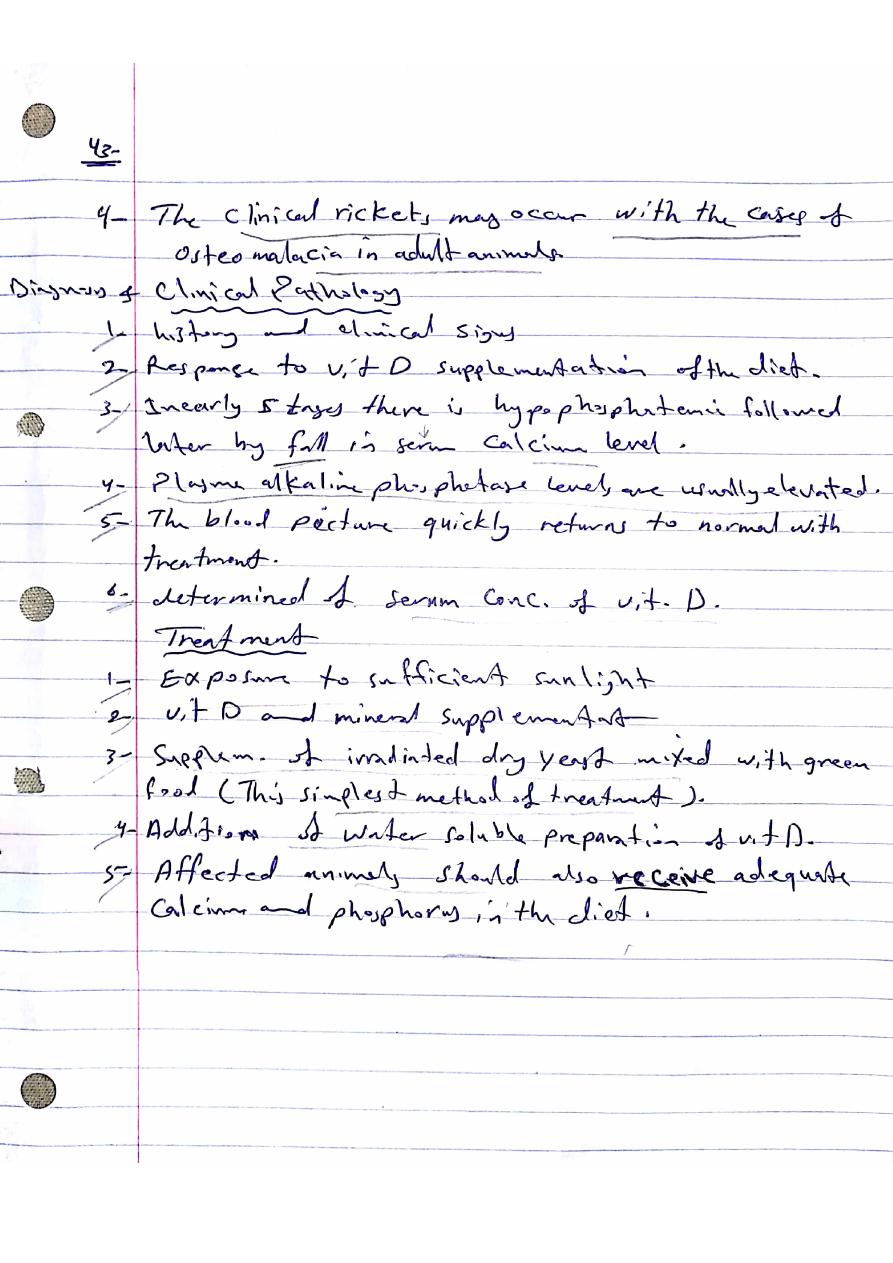 43-
4- The clinical rickets may occur with the cases of
osteomalacia in adult animals.
Diagnosis & Clinical Pathology
1- history and clinical signs
2- Response to vit D supplementation of the diet.
3- In early stages there is hypophosphatemia followed
later by fall in serum calcium level.
4- Plasma alkaline phosphatase levels are usually elevated.
5- The blood picture quickly returns to normal with
treatment.
6- determined of serum conc. of vit. D.
Treatment
1- Exposure to sufficient sunlight
2- vit D and mineral supplementat
3- Supplem. of irradiated dry yeast mixed with green
food (This simplest method of treatment).
4- Addition of water soluble preparation of vit D.
5- Affected animals should also receive adequate
Calcium and phosphorus in the diet.